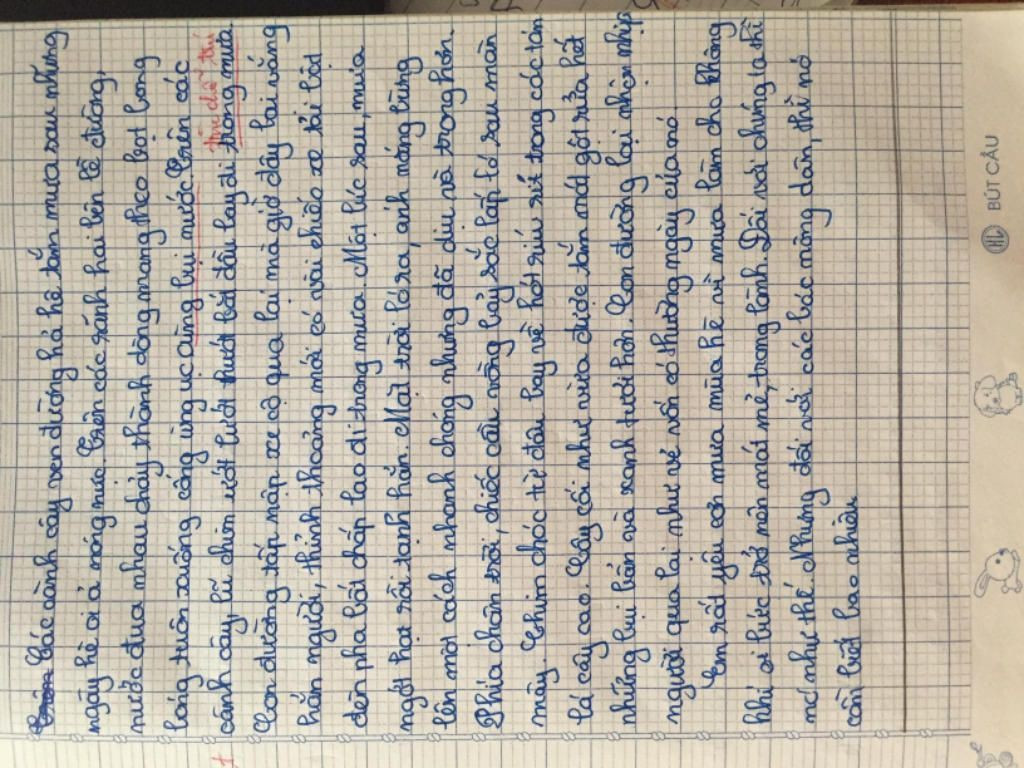 Các cành cây ven đường hả hê tắm mưa sau những
ngày hè oi ả nóng nực. Trên các rãnh hai bên lề đường,
nước đua nhau chảy thành dòng mang theo bọt bong
bóng tuôn xuống cống ùng ục cùng bụi nước. Trên các
tìm dế trú
cành cây, lũ chim ướt lướt thướt bắt đầu bay đi trong mưa.
Con đường tấp nập xe cộ qua lại mà giờ đây lại vắng
hẳn người, thỉnh thoảng mới có vài chiếc xe tải bật
đèn pha bất chấp lao đi trong mưa. Một lúc sau, mưa
ngớt hạt rồi tạnh hẳn. Mặt trời ló ra, ánh nắng bừng
lên một cách nhanh chóng nhưng đã dịu và trong hơn.
Phía chân trời, chiếc cầu vồng bảy sắc lấp ló sau màn
mây. Chim chóc từ đâu bay về hót ríu rít trong các tán
lá cây cao. Cây cối như vừa được tắm mát gột rửa hết
những bụi bẩn và xanh tươi hơn. Con đường lại nhộn nhịp
người qua lại như vẻ vốn có thường ngày của nó.
Em rất yêu cơn mưa mùa hè vì mưa làm cho không
khí oi bức trở nên mát mẻ, trong lành. Đối với chúng ta thì
nó như thế. Nhưng đối với các bác nông dân, thì nó
cần biết bao nhiêu.
BÚT CÂU